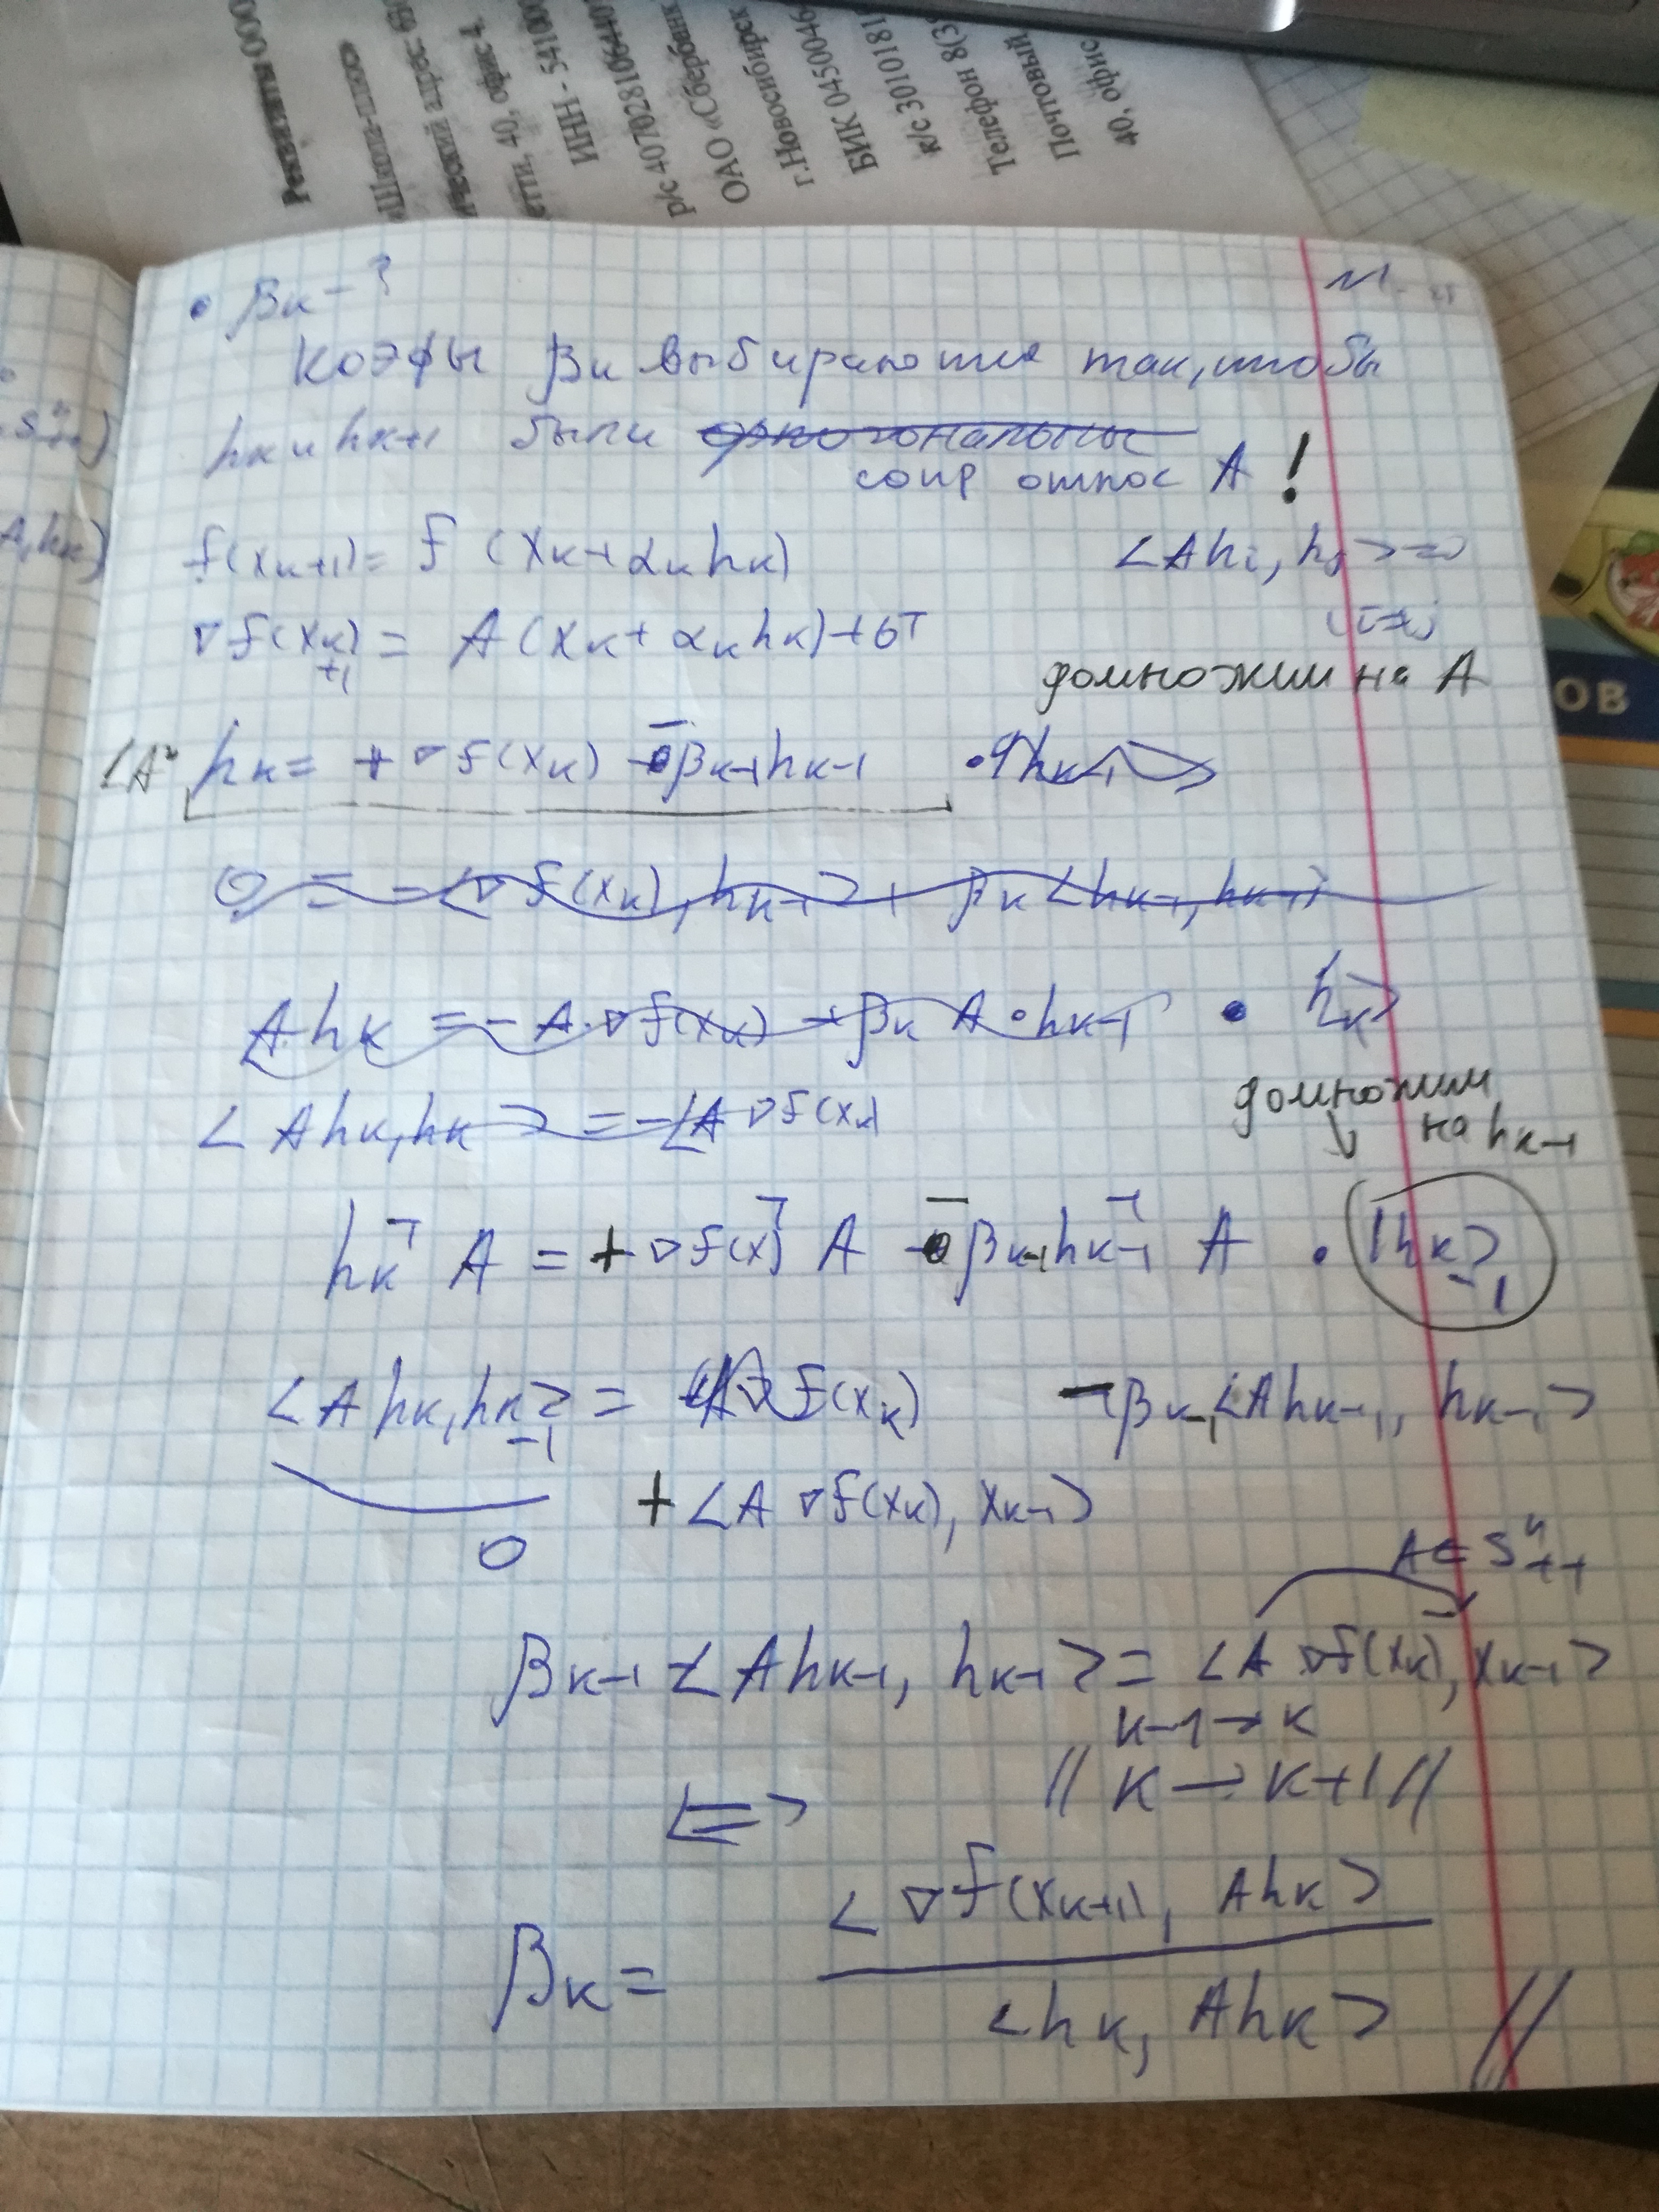 Реквизиты ООО
«Школа-плюс»
ический адрес: 630
сети, 40, офис 4
ИНН - 541000
р/с 40702810640
ОАО «Сбербанк
г.Новосибирск
БИК 0450046
к/с 3010181
Телефон 8(3
Почтовый
40, офис
ОВ
• βк - ?
Коэфы βк выбираются так, чтобы
hк и hк+1 были ортогональны
сопр относ A !
f(xк+1) = f (xк + αкhк)
<Ahi, hj> = 0
∇f(xк+1) = A(xк + αкhк) + bT
домножим на A
hк = + ∇f(xк) - βк-1hк-1
0 = - <∇f(xк), hк-1> + βк <hк-1, hк-1>
Ahк = - A·∇f(xк) + βк A·hк-1 • hк>
<Ahк, hк> = -<A ∇f(xк)
домножим
на hк-1
hкT A = + ∇f(x)T A - βк-1hк-1T A • |hк-1>
<Ahк, hк-1> = ∇f(xк) - βк-1<Ahк-1, hк-1>
0
+ <A ∇f(xк), xк-1>
A ∈ Sn++
βк-1 <Ahк-1, hк-1> = <A ∇f(xк), xк-1>
к-1 → к
<=> // к → к+1 //
βк = <∇f(xк+1), Ahк> / <hк, Ahк> //